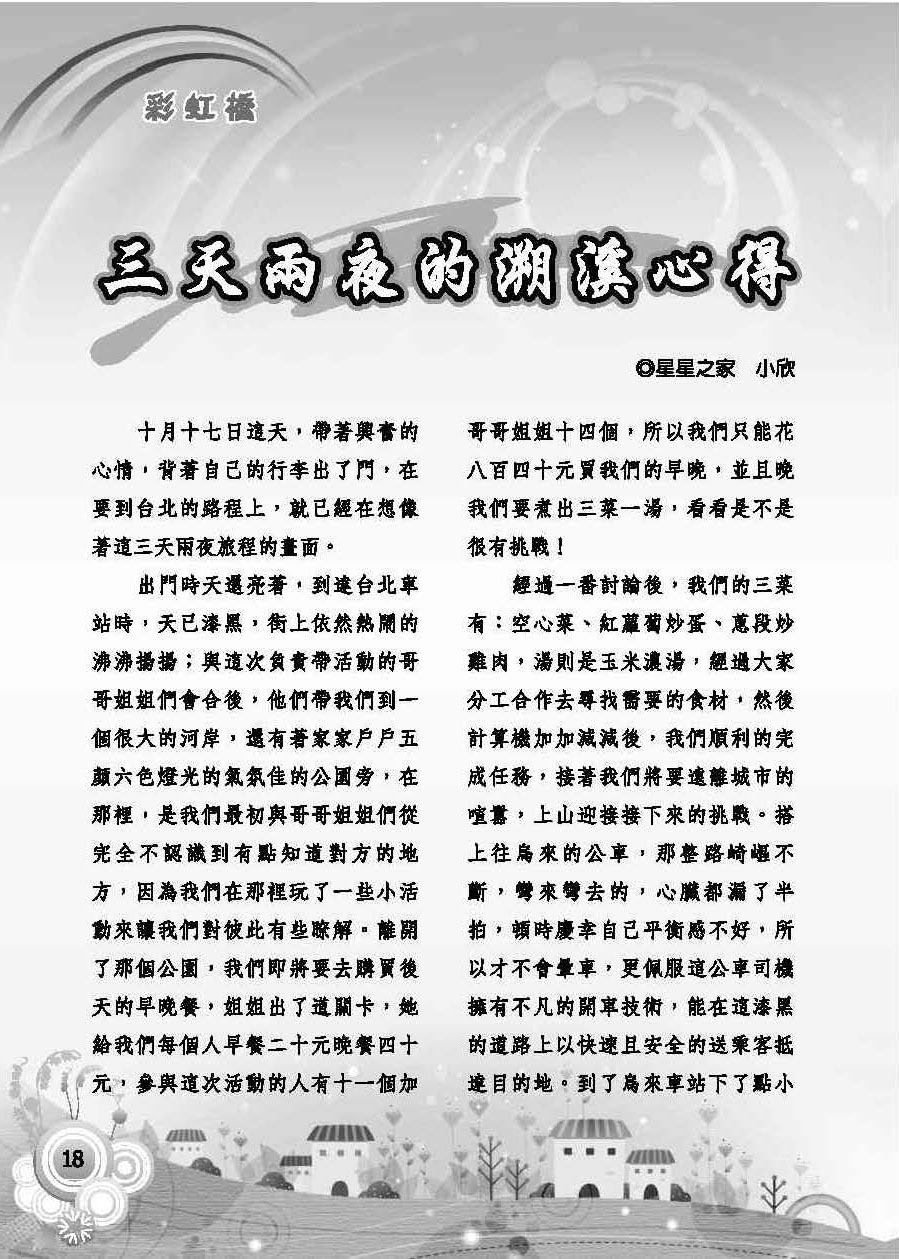 彩虹橋
三天兩夜的溯溪心得
◎星星之家　小欣
十月十七日這天，帶著興奮的
心情，背著自己的行李出了門，在
要到台北的路程上，就已經在想像
著這三天兩夜旅程的畫面。
出門時天還亮著，到達台北車
站時，天已漆黑，街上依然熱鬧的
沸沸揚揚；與這次負責帶活動的哥
哥姐姐們會合後，他們帶我們到一
個很大的河岸，還有著家家戶戶五
顏六色燈光的氣氛佳的公園旁，在
那裡，是我們最初與哥哥姐姐們從
完全不認識到有點知道對方的地
方，因為我們在那裡玩了一些小活
動來讓我們對彼此有些瞭解。離開
了那個公園，我們即將要去購買後
天的早晚餐，姐姐出了道關卡，她
給我們每個人早餐二十元晚餐四十
元，參與這次活動的人有十一個加
哥哥姐姐十四個，所以我們只能花
八百四十元買我們的早晚，並且晚
我們要煮出三菜一湯，看看是不是
很有挑戰！
經過一番討論後，我們的三菜
有：空心菜、紅蘿蔔炒蛋、蔥段炒
雞肉，湯則是玉米濃湯，經過大家
分工合作去尋找需要的食材，然後
計算機加加減減後，我們順利的完
成任務，接著我們將要遠離城市的
喧囂，上山迎接接下來的挑戰。搭
上往烏來的公車，那整路崎嶇不
斷，彎來彎去的，心臟都漏了半
拍，頓時慶幸自己平衡感不好，所
以才不會暈車，更佩服這公車司機
擁有不凡的開車技術，能在這漆黑
的道路上以快速且安全的送乘客抵
達目的地。到了烏來車站下了點小
18